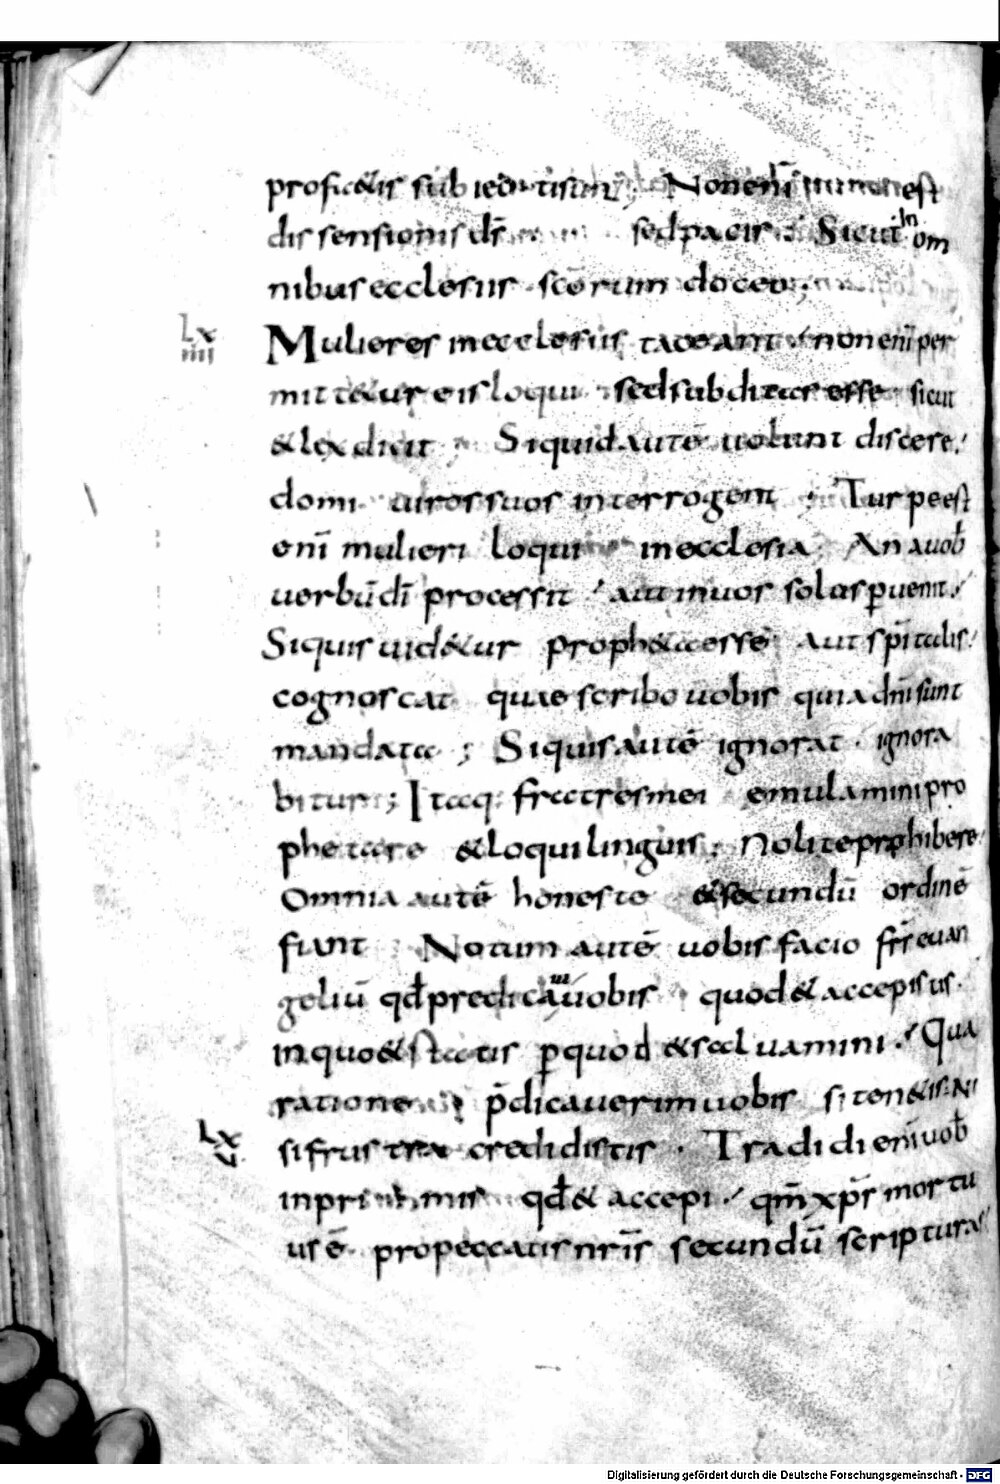 prof&is subiecti sunt; Non enī est
dissensionis ds̄ sed pacis; Sicut in om
nibus ecclesiis scōrum doceo;
Lx
iiii
Mulieres in ecclesiis taceant non enī per
mitt&ur eis loqui sed subditas esse sicut
& lex dicit; Siquid autē uolunt discere
domi uiros suos interrogent; Turpe est
enī mulieri loqui in ecclesia. An a uob̄
uerbū dī processit aut in uos solus ꝑuenit
Siquis uid&ur proph&a esse aut sp̄italis
cognoscat quae scribo uobis quia dnī sunt
mandata; Siquis autē ignorat. ignora
bitur; Itaq: fratres mei emulamini pro
phetare & loqui linguis; Nolite prohibere
Omnia autē honeste & secundū ordinē
fiant Notum autē uobis facio fr̄s euan
geliū qđ predicaui uobis quod & accepistis.
in quo & statis ꝑ quod & saluamini. Qua
ratione p̄dicauerim uobis si ten&is. Ni
Lx
v
si frustra credidistis. Tradidi enī uob̄
in primis qđ & accepi qm̄ xp̄s mortu
us ē pro peccatis nr̄is secundū scripturas
Digitalisierung gefördert durch die Deutsche Forschungsgemeinschaft - DFG